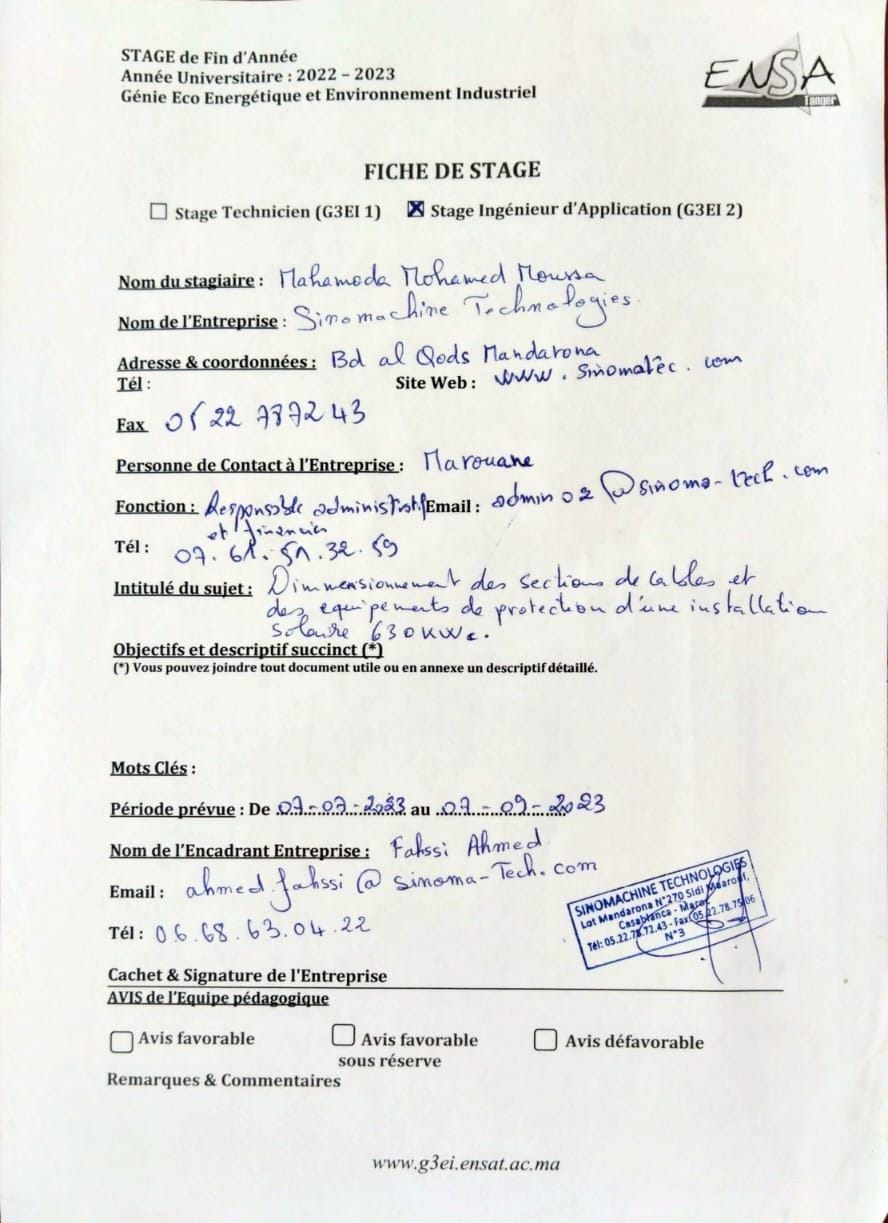 STAGE de Fin d'Année
Année Universitaire : 2022 – 2023
Génie Eco Energétique et Environnement Industriel
ENSA
Tanger
FICHE DE STAGE
☐ Stage Technicien (G3EI 1) ☒ Stage Ingénieur d'Application (G3EI 2)
Nom du stagiaire : Mahamoda Mohamed Moussa
Nom de l'Entreprise : Sinomachine Technologies
Adresse & coordonnées : Bd al Qods Mandarona
Tél : Site Web : www.sinomatec.com
Fax 05 22 787243
Personne de Contact à l'Entreprise : Marouane
Fonction : Responsble administratif Email : admin02@sinoma-tech.com
et financier
Tél : 07.61.51.32.59
Intitulé du sujet : Dimmensionnement des sections de cables et
des equipements de protection d'une installation
Solaire 630 KWc.
Objectifs et descriptif succinct (*)
(*) Vous pouvez joindre tout document utile ou en annexe un descriptif détaillé.
Mots Clés :
Période prévue : De 07-07-2023 au 07-09-2023
Nom de l'Encadrant Entreprise : Fahssi Ahmed
Email : ahmed.fahssi@sinoma-Tech.com
Tél : 06.68.63.04.22
SINOMACHINE TECHNOLOGIES
Lot Mandarona N°270 Sidi Maarouf,
Casablanca - Maroc
Tél: 05.22.78.72.43 - Fax: 05.22.78.75.06
N°3
Cachet & Signature de l'Entreprise
AVIS de l'Equipe pédagogique
☐ Avis favorable ☐ Avis favorable ☐ Avis défavorable
sous réserve
Remarques & Commentaires
www.g3ei.ensat.ac.ma